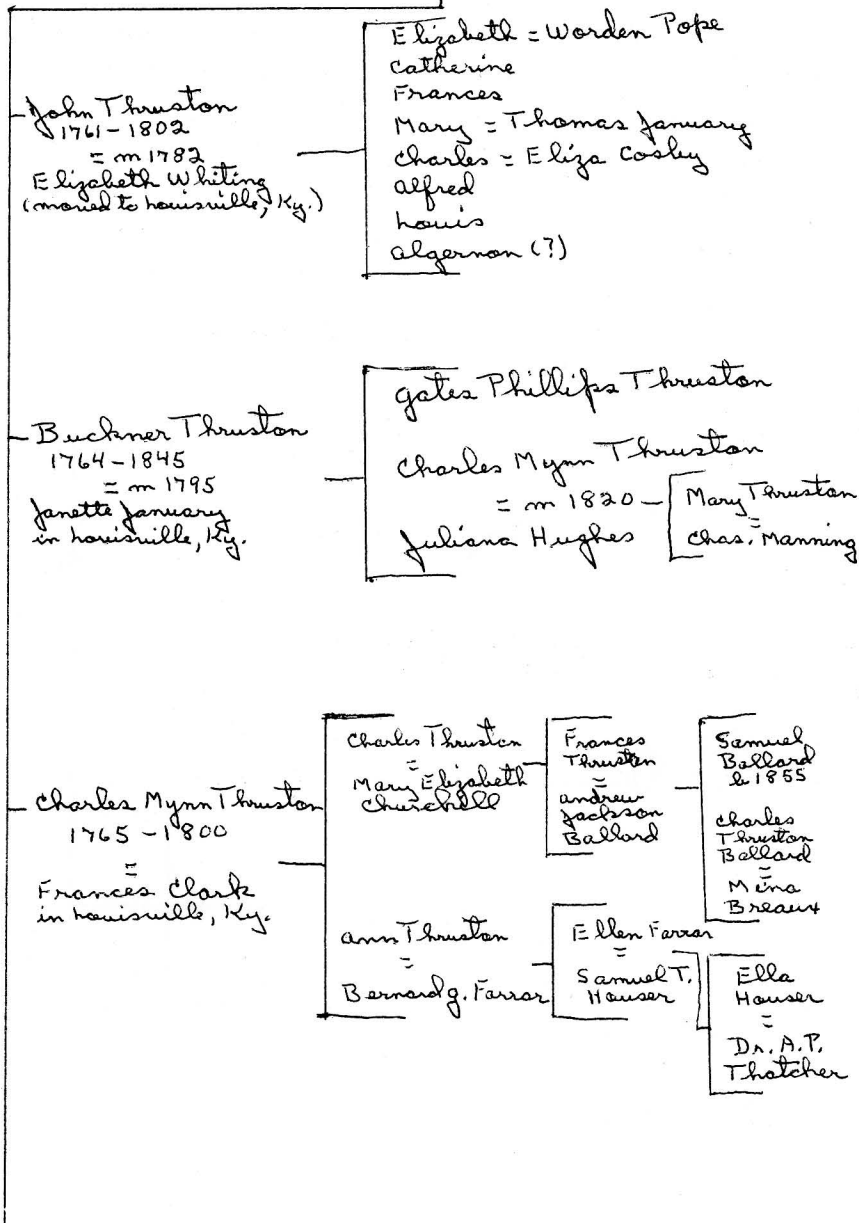 John Thruston
1761-1802
= m 1782
Elizabeth Whiting
(moved to Louisville, Ky.)
Elizabeth = Worden Pope
Catherine
Frances
Mary = Thomas January
Charles = Eliza Cosby
Alfred
Louis
Algernon (?)
Buckner Thruston
1764-1845
= m 1795
Janette January
in Louisville, Ky.
Gates Phillips Thruston
Charles Mynn Thruston
= m 1820
Juliana Hughes
Mary Thruston
=
Chas. Manning
Charles Mynn Thruston
1765-1800
=
Frances Clark
in Louisville, Ky.
Charles Thruston
=
Mary Elizabeth
Churchill
Frances
Thruston
=
Andrew
Jackson
Ballard
Samuel
Ballard
b 1855
Charles
Thruston
Ballard
=
Mina
Breaux
Ann Thruston
=
Bernard G. Farrar
Ellen Farrar
=
Samuel T.
Hauser
Ella
Hauser
=
Dr. A.P.
Thatcher